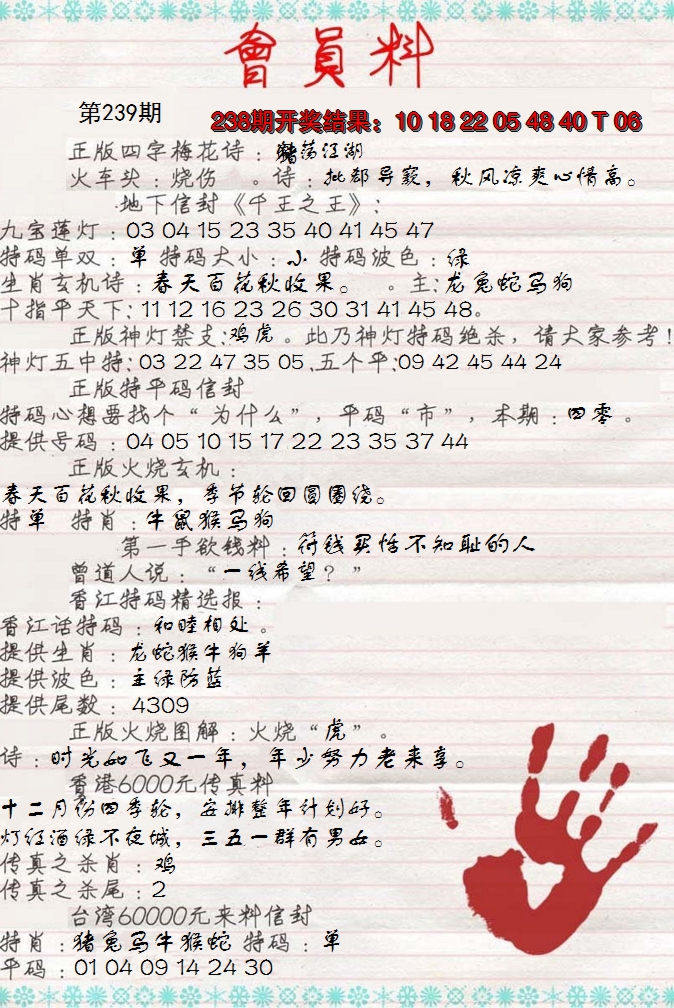 會員料
第239期
238期开奖结果：10 18 22 05 48 40 T 06
正版四字梅花诗：荡江湖
火车头：烧伤 。诗：批郄导窾，秋风凉爽心情高。
地下信封《千王之王》：
九宝莲灯：03 04 15 23 35 40 41 45 47
特码单双：单 特码大小：小 特码波色：绿
生肖玄机诗：春天百花秋收果。 。主：龙兔蛇马狗
十指平天下：11 12 16 23 26 30 31 41 45 48。
正版神灯禁支：鸡虎。此乃神灯特码绝杀，请大家参考！
神灯五中特：03 22 47 35 05.五个平：09 42 45 44 24
正版特平码信封
特码心想要找个“为什么”，平码“市”，本期：四零。
提供号码：04 05 10 15 17 22 23 35 37 44
正版火烧玄机：
春天百花秋收果，季节轮回圆圈绕。
特单 特肖：牛鼠猴马狗
第一手欲钱料：符钱买恬不知耻的人
曾道人说：“一线希望？”
香江特码精选报：
香江话特码：和睦相处。
提供生肖：龙蛇猴牛狗羊
提供波色：主绿防蓝
提供尾数：4309
正版火烧图解：火烧“虎”。
诗：时光如飞又一年，年少努力老来享。
香港6000元传真料
十二月份四季轮，安排整年计划好。
灯红酒绿不夜城，三五一群有男女。
传真之杀肖：鸡
传真之杀尾：2
台湾60000元来料信封
特肖：猪兔马牛猴蛇 特码：单
平码：01 04 09 14 24 30